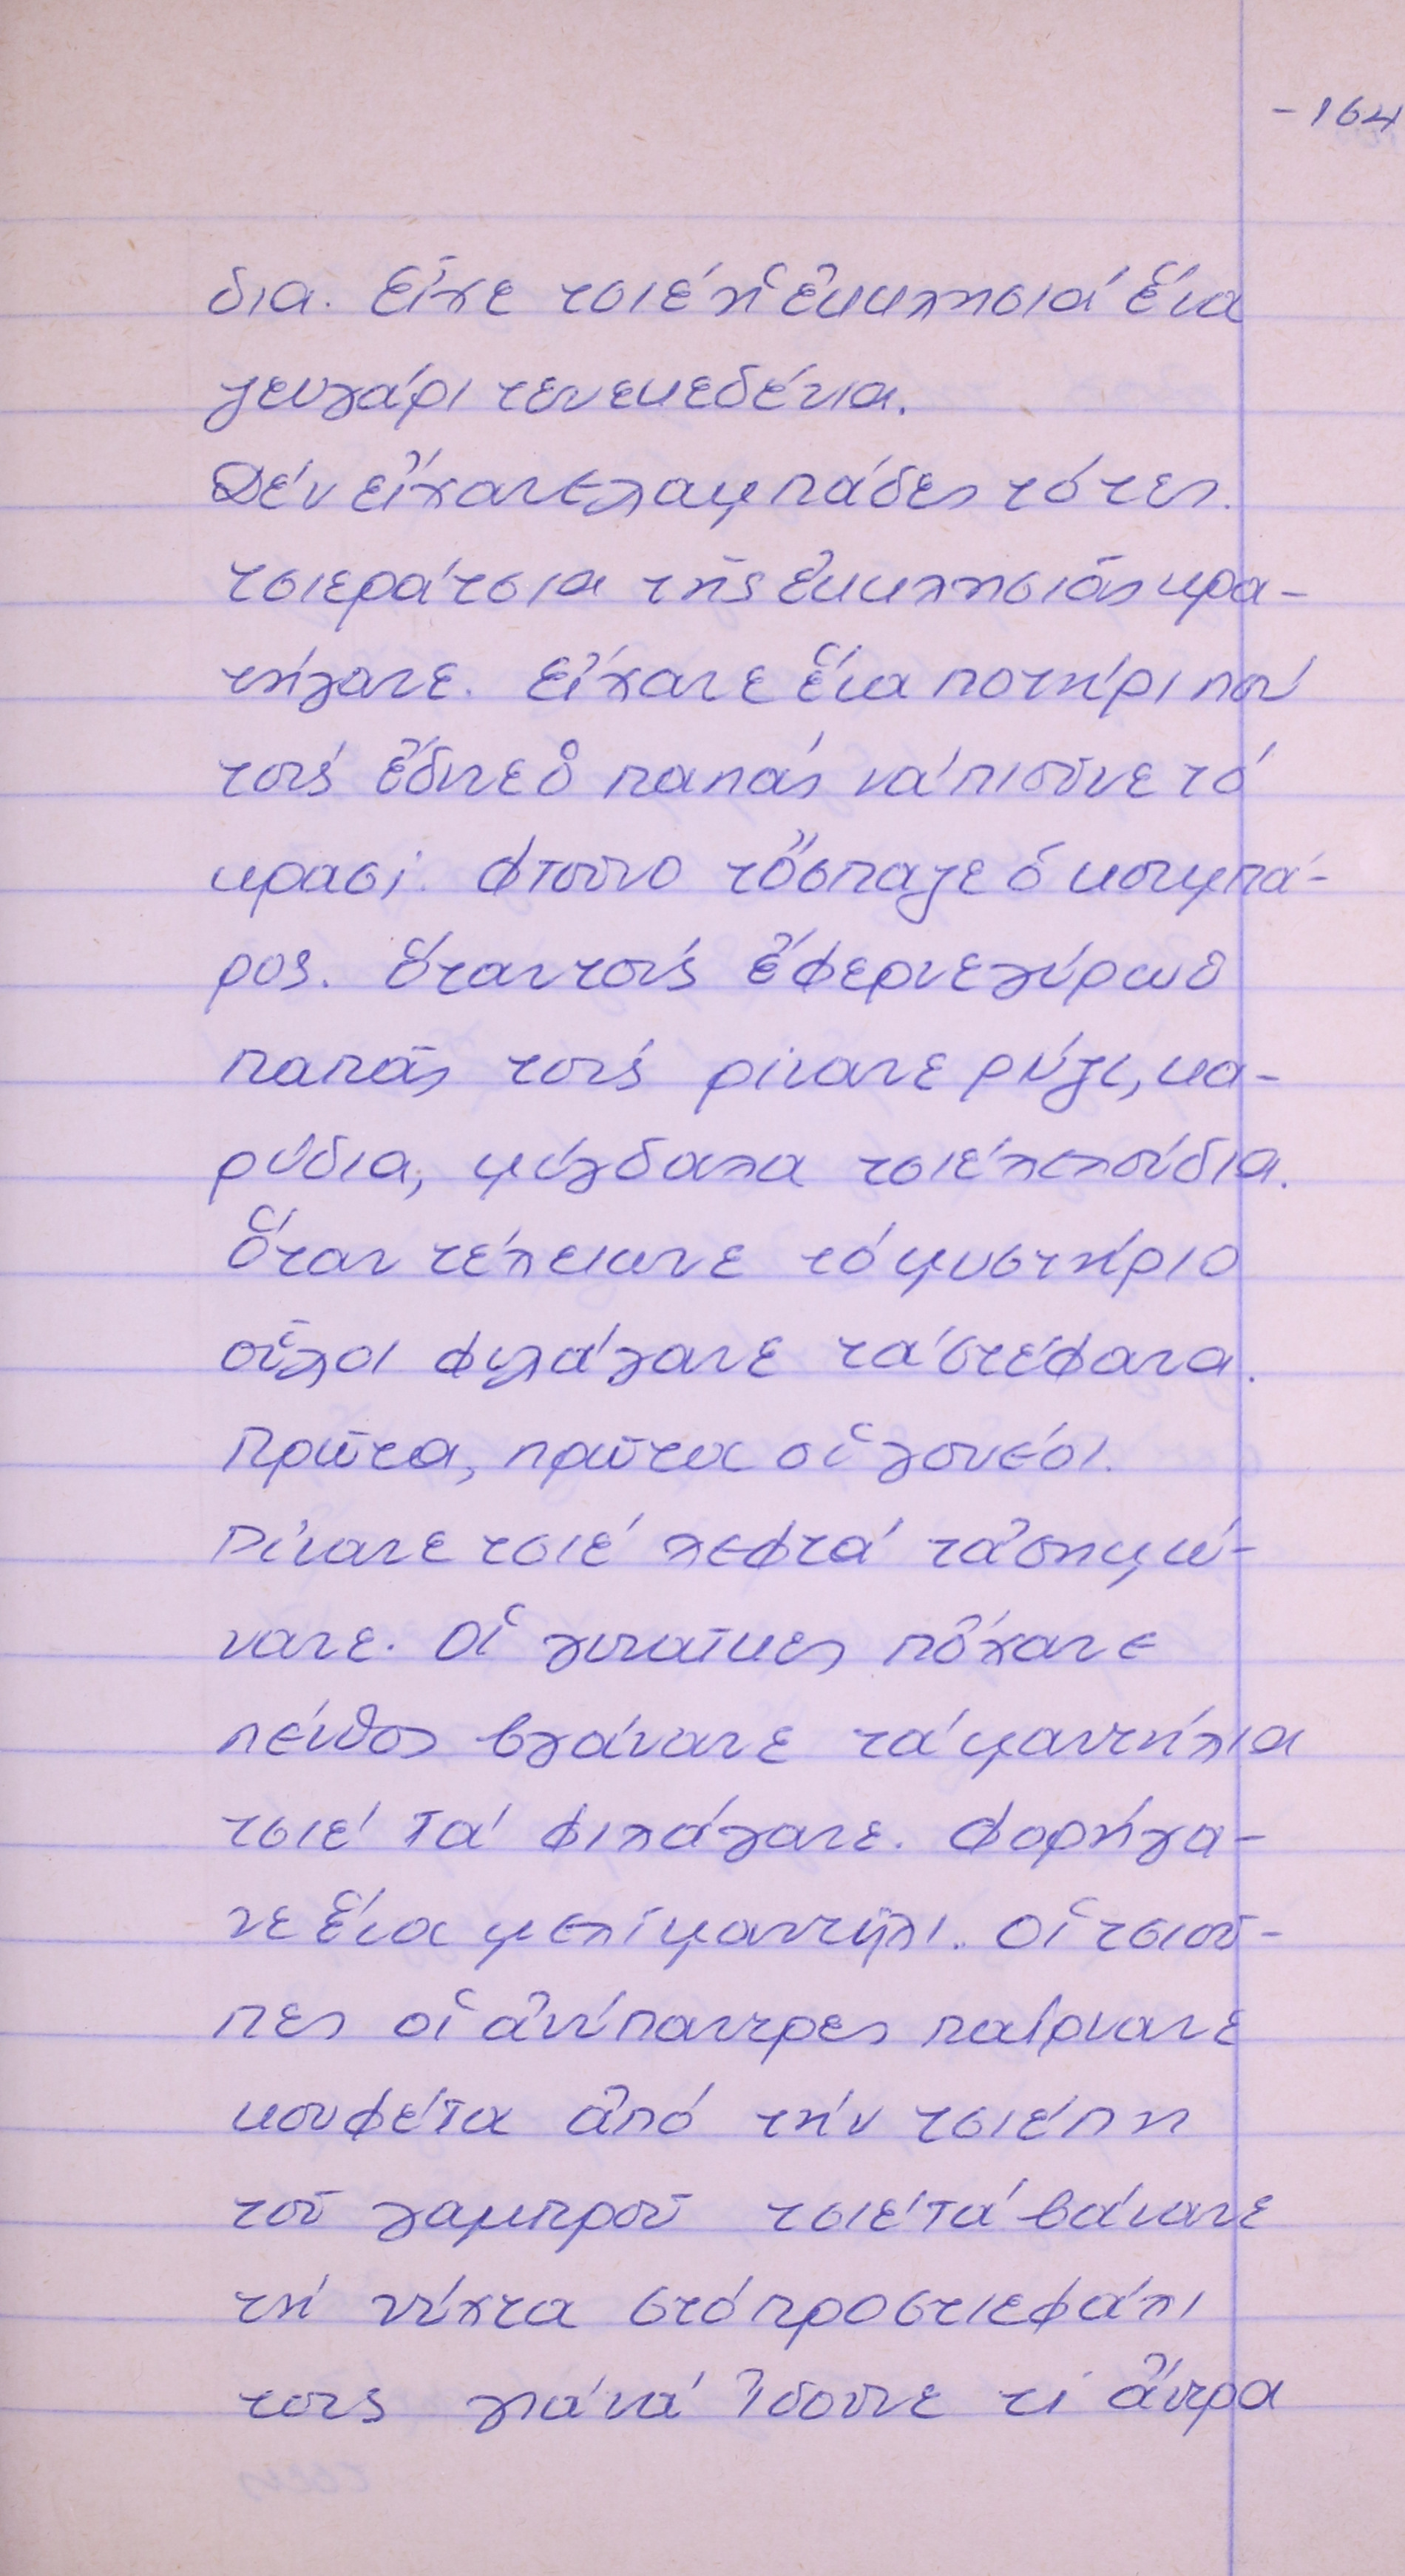 -164
δια. Εἶχε τσιέ ἡ ἐκκλησιά ἕνα
ζευγάρι τενεκεδένια.
Δέν εἴχανε λαμπάδες τότες.
τσιεράτσια τῆς ἐκκλησιᾶς κρα-
τήγανε. Εἴχανε ἕνα ποτήρι πού
τούς ἔδινε ὁ παπάς νά πιοῦνε τό
κρασί. Φτοῦνο τὄσπαζε ὁ κουμπά-
ρος. Ὅταν τούς ἔφερνε γύρω ὁ
παπᾶς τούς ρίνανε ρύζι, κα-
ρύδια, μύγδαλα τσιέ λελούδια.
Ὅταν τέλειωνε τό μυστήριο
οὗλοι φιλάγανε τά στέφανα.
Πρῶτα, πρῶτα οἱ γονέοι.
Ρίνανε τσιέ λεφτά τἀσημώ-
νανε. Οἱ γυναῖκες πὄχανε
πένθος βγάνανε τά μαντήλια
τσιέ τά φιλάγανε. Φορήγα-
νε ἕνα μελί μαντήλι. Οἱ τσιοῦ-
πες οἱ ἀνύπαντρες παίρνανε
κουφέτα ἀπό τήν τσιέπη
τοῦ γαμπροῦ τσιέ τά βάνανε
τή νύχτα στό προστσιεφάλι
τους γιά νά ἰδοῦνε τί ἄντρα